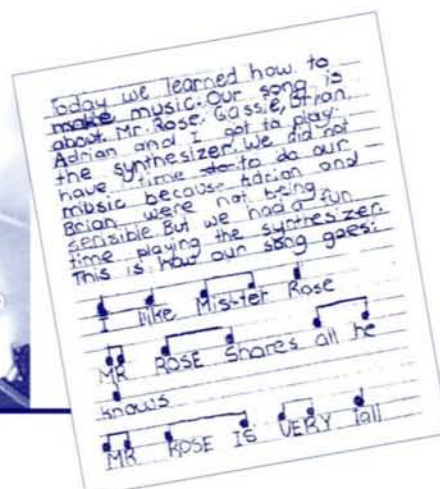 Today we learned how to
make music. Our song is
about Mr. Rose. Cassie, Brian,
Adrian and I got to play
the synthesizer. We did not
have time to do our
music because Adrian and
Brian were not being
sensible. But we had a fun
time playing the synthesizer.
This is how our song goes:
I like Mis-ter Rose
MR ROSE Shares all he
knows
MR ROSE IS VERY tall